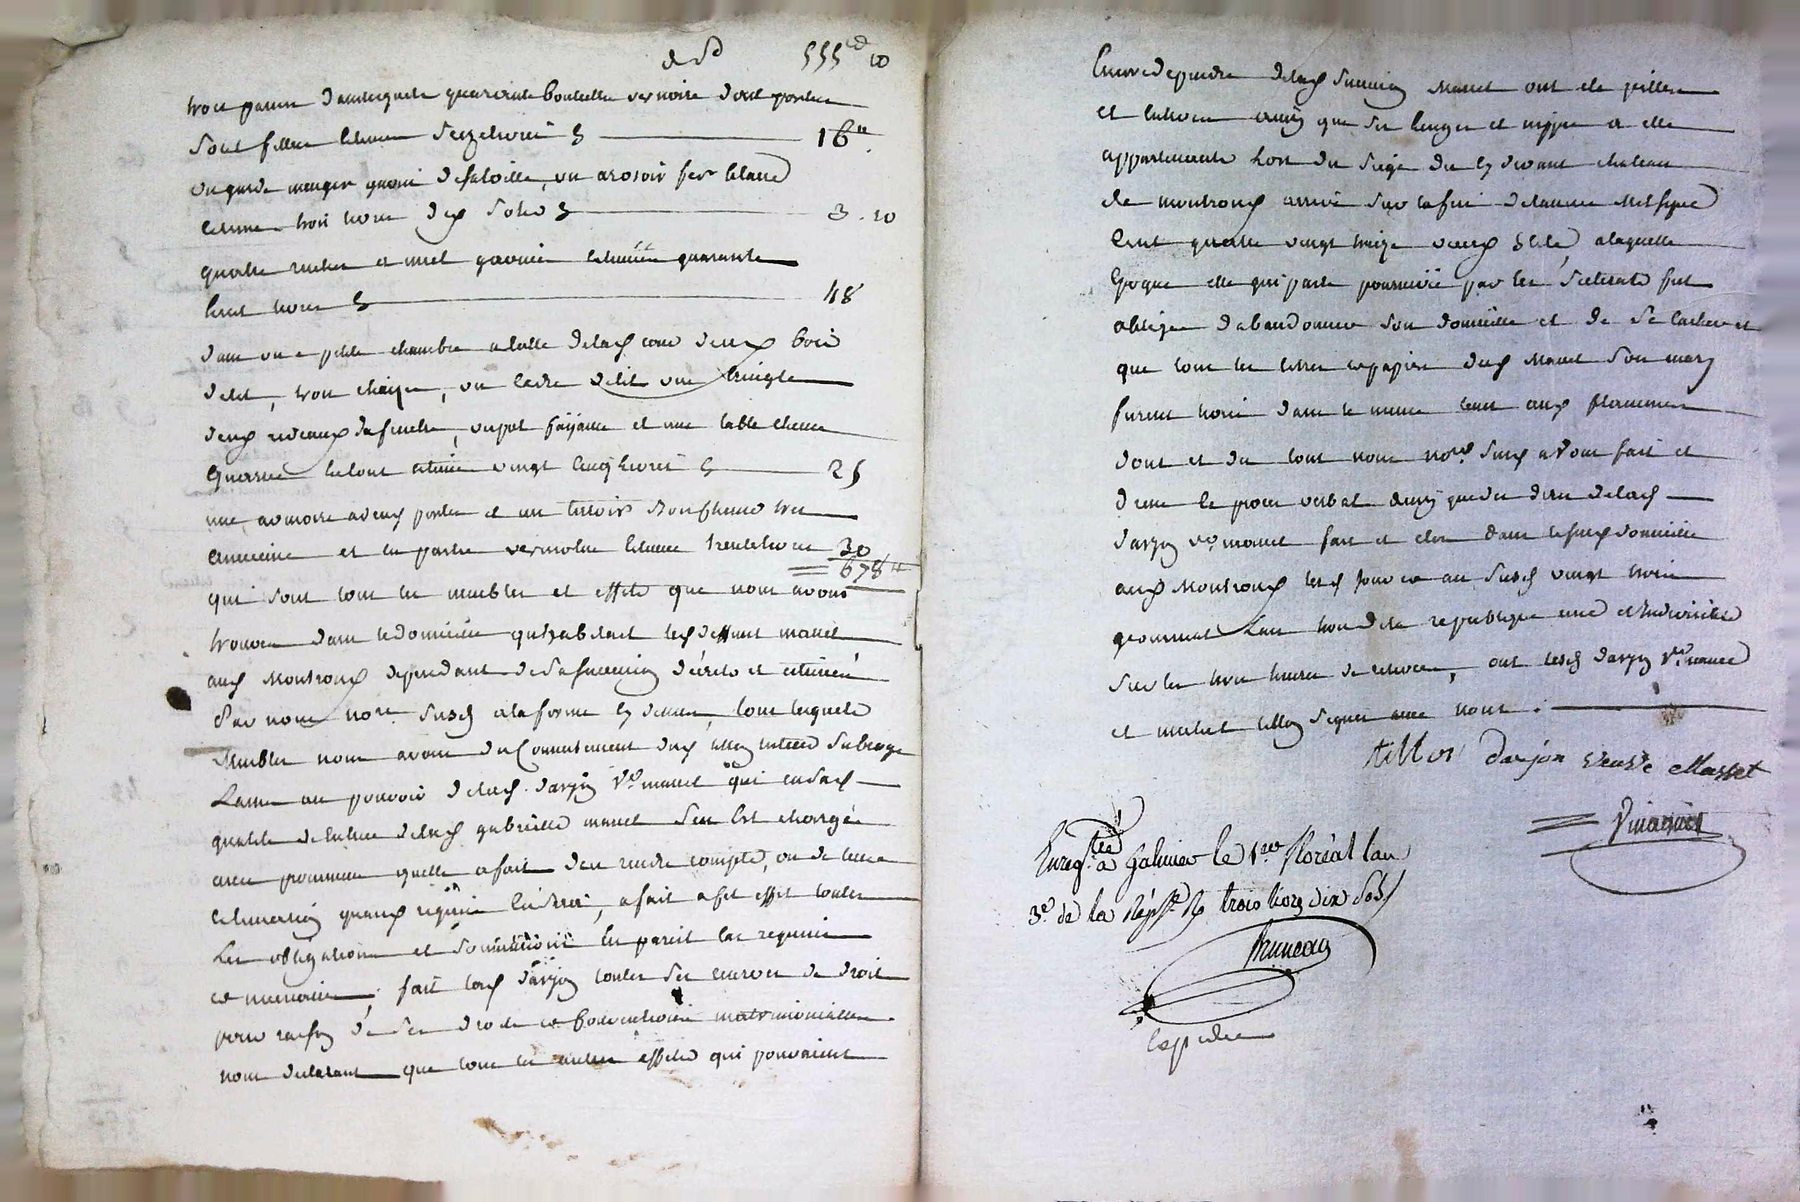 555 10
trois paniers dans lesquels quarante bouteilles ver noire dont
sont estimes seize livres 16
un garde manger garni de sa toille, un arosoir fer blanc
estimes trois livres dix sols 3 . 10
quatre ruches a miel garnies estimées quarante
huit livres 48
dans une petite chambre a côté de lad. cour deux bois
de lit, trois chaises, un cadre de lit une tringle
deux rideaux de fenetre, un pot fayance et une table chene
quarrée le tout estimé vingt cinq livres 25
une armoire a deux portes et un tiroir bois chene tres
ancienne et en partie vermolue estimée trente livres 30
678
qui sont tous les meubles et effets que nous avons
trouvés dans le domicile qu'habitait led. deffunt masset
aud. Montrond dependant de sa succession décrits et estimés
par nous nore. susd. a la forme cy dessus, tous lesquels
Meubles nous avons du Consentement dud. tillon laissé
au pouvoir de lad. darjon Ve. masset qui en sad.
qualité de tutrice de lad. gabrielle masset s'en est chargée
avec promesse quelle a fait d'en rendre compte,
quand requise en sera, a fait a cet effet toutes
les obligations et soumissions en pareil cas requises
et necessaires, fait lad. darjon toutes ses reserves de droit
pour raison de ses droits et Conventions matrimoniales
nous declarant que tous les autres effets qui pouvaient
Encore dependre de lad. succession Masset ont ete pillés
et enlevés ainsi que ses linges et nippes a elle
appartenants lors du siege du cy devant chateau
de montrond arrivé sur la fin de l'année Mil sept
Cent quatre vingt treize vieux stile, a laquelle
Epoque elle qui parle poursuivie par les scelerats fut
obligée d'abandonner son domicile et de se cacher et
que tous les titres et papiers dud. Masset son mary
furent livrés dans le meme tems aux flammes
dont et du tout nous nore. susd. avons fait et
dressé le proces verbal ainsi que du dire de lad.
darjon ve. masset fait et clos dans le susd. domicile
aud. Montrond led. jour an susd. vingt trois
germinal L'an trois de la republique une et Indivisible
sur les trois heures de relevée, ont lesd. darjon Ve. masset
et tillon signés avec nous .
tillon darjon veuve Masset
Enregtré. à Galmier le 1er floréal l'an
3e de la Répe. R trois livres dix sols
Bruneau